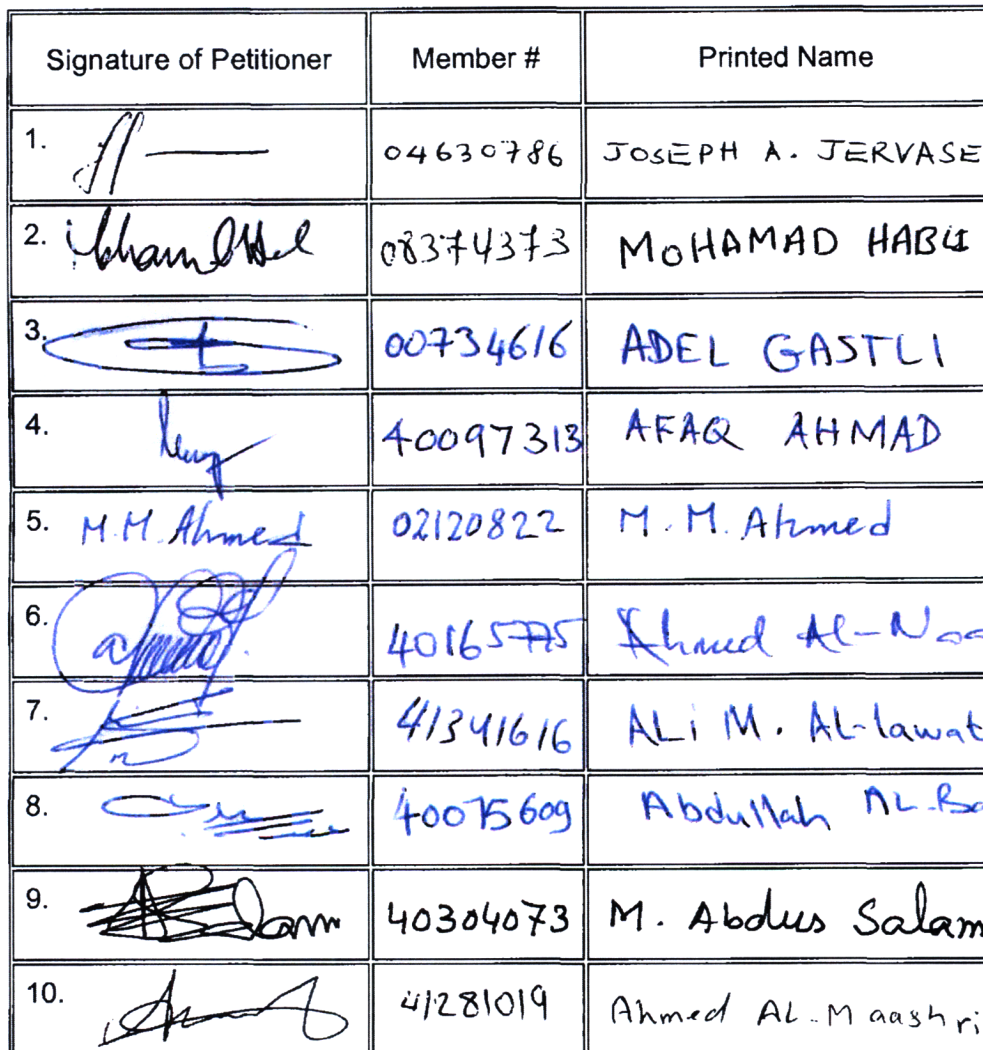 Signature of Petitioner Member # Printed Name
1. 04630786 JOSEPH A. JERVASE
2. 08374373 MOHAMAD HABLI
3. 00734616 ADEL GASTLI
4. 40097313 AFAQ AHMAD
5. M.M. Ahmed 02120822 M. M. Ahmed
6. 40165775 Ahmed Al-Naa
7. 41341616 ALi M. AL-lawat
8. 40075609 Abdullah AL-Ba
9. 40304073 M. Abdus Salam
10. 41281019 Ahmed AL-Maashri